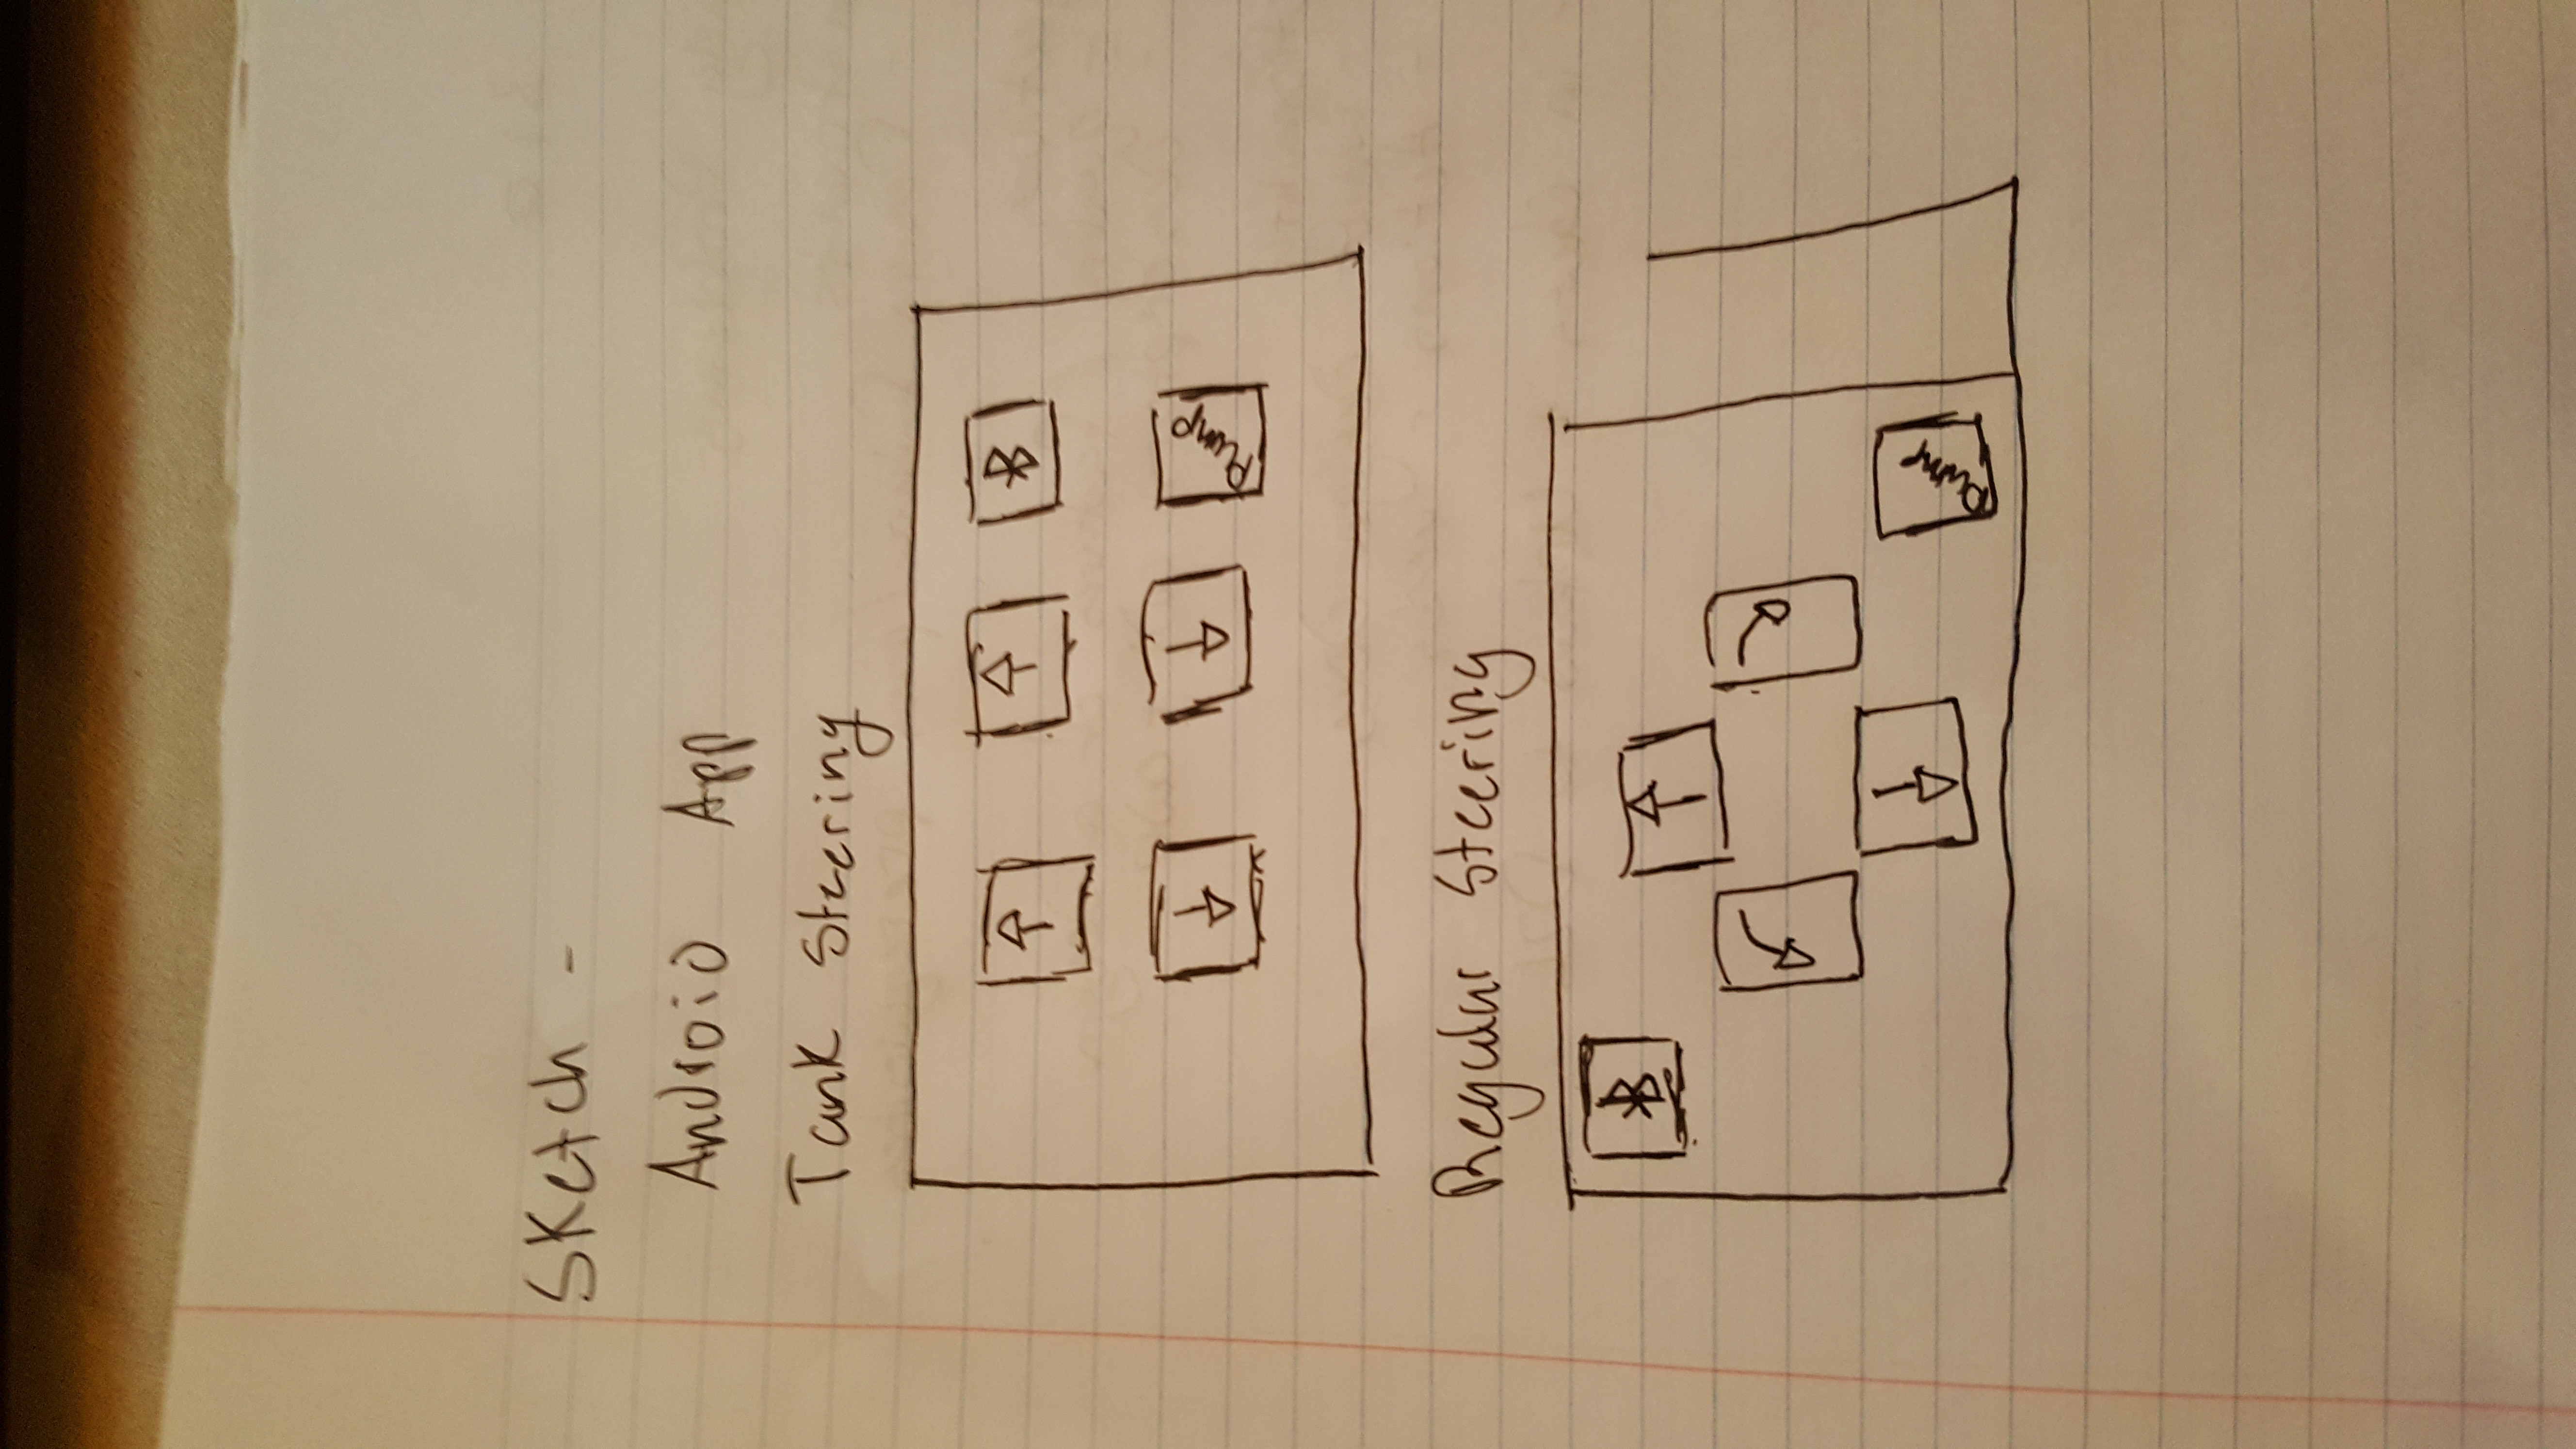 Sketch -
Android App
Tank Steering
Pump
Regular Steering
Pump